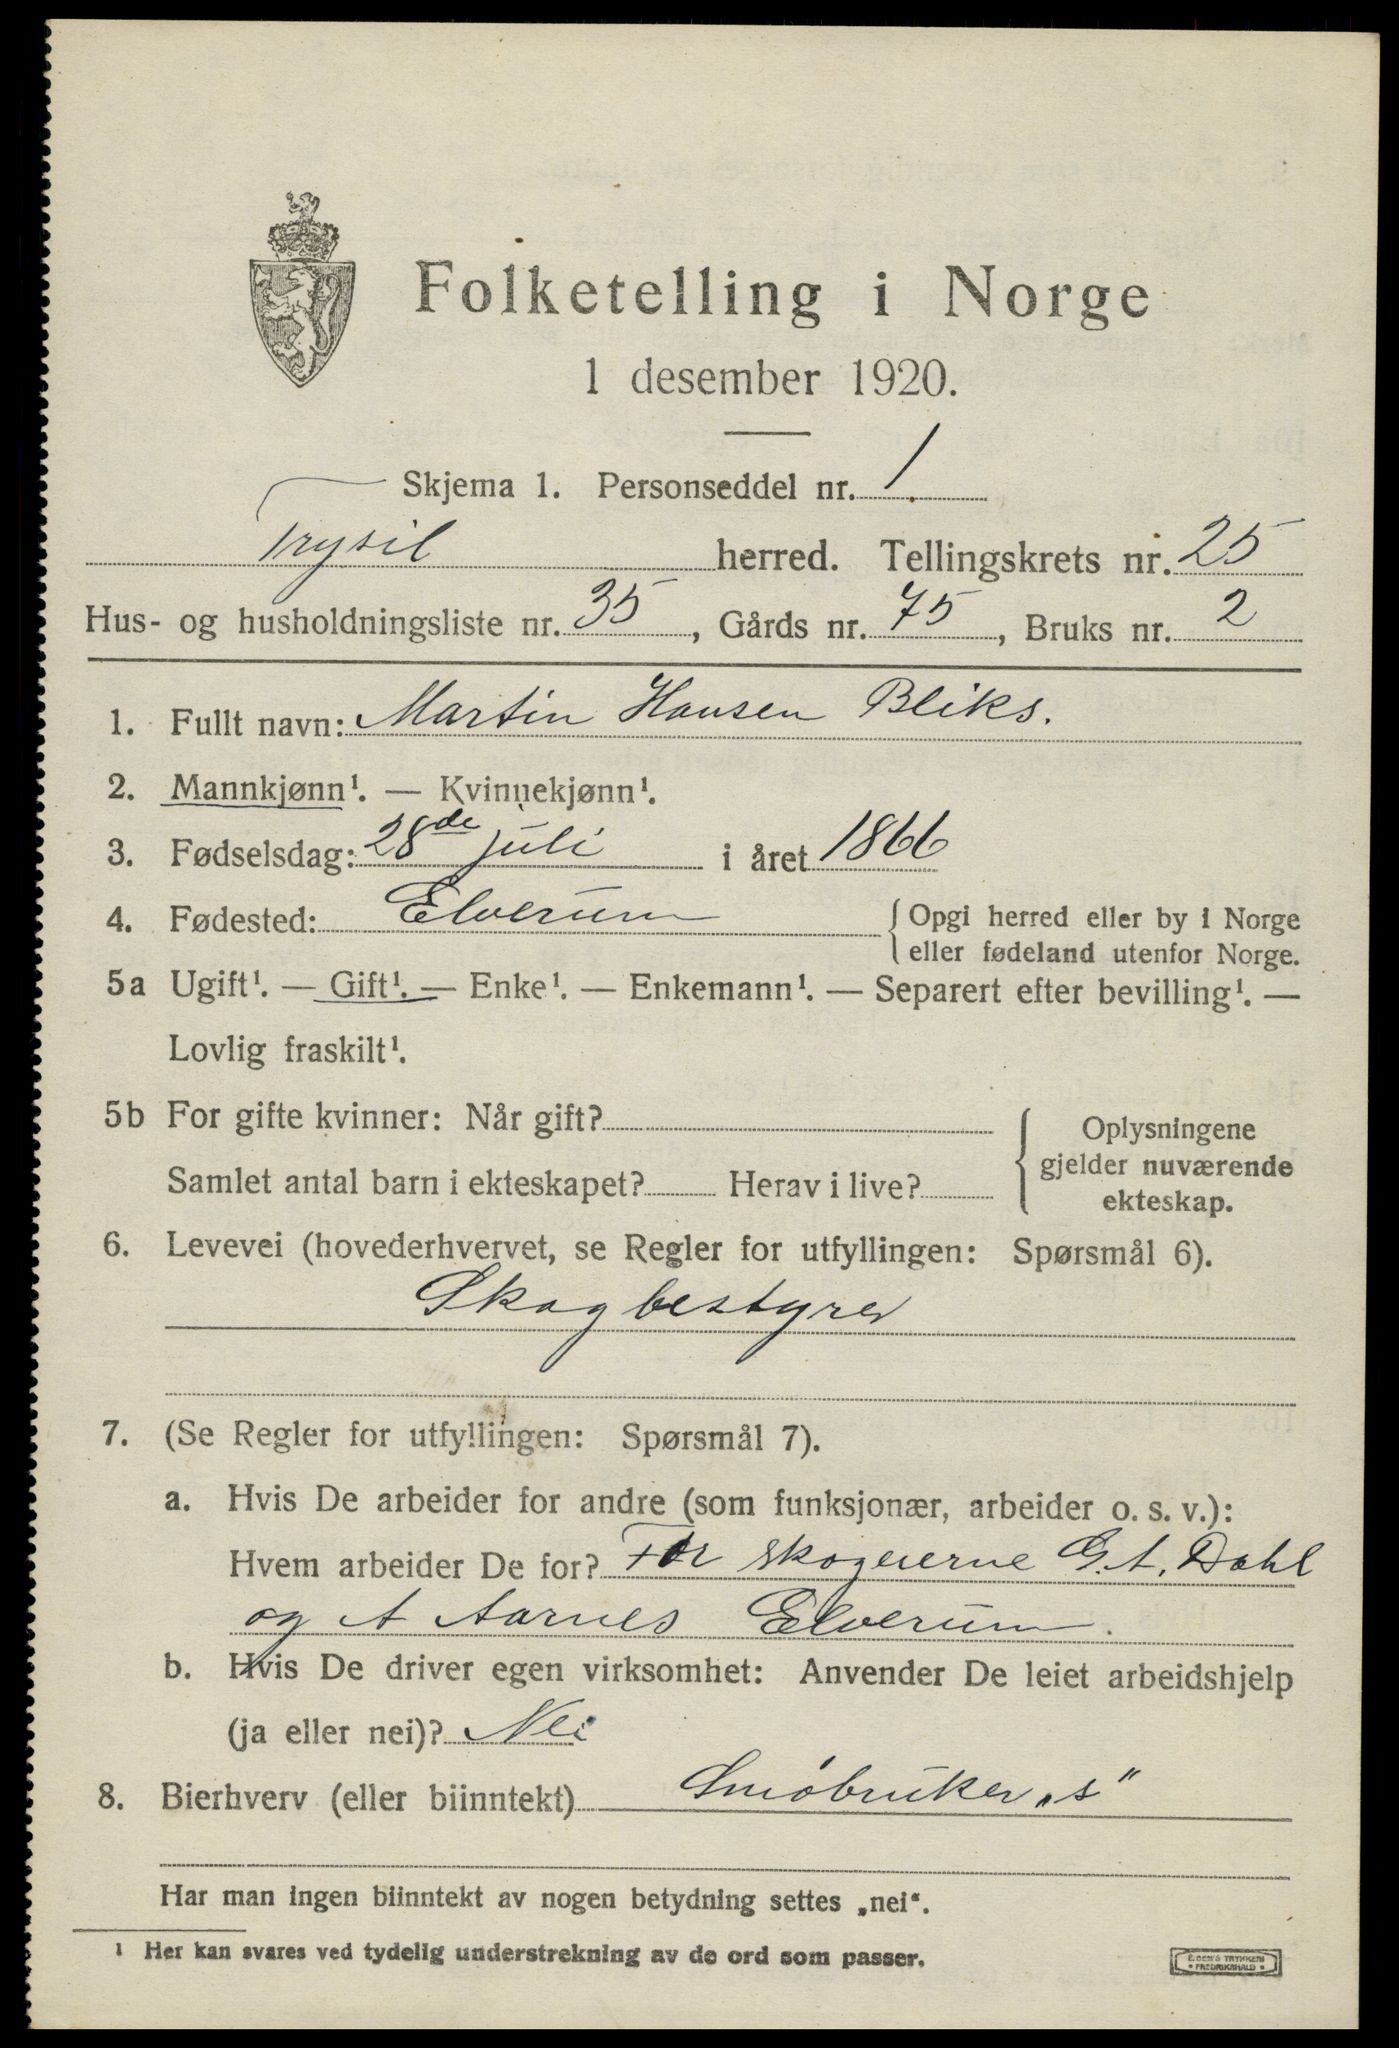 Folketelling i Norge
1 desember 1920.
Skjema 1. Personseddel nr. 1.
Trysil herred. Tellingskrets nr. 25
Hus- og husholdningsliste nr. 35, Gårds nr. 75, Bruks nr. 2
1. Fullt navn: Martin Hansen Bliks.
2. Mannkjønn¹. — Kvinnekjønn¹.
3. Fødselsdag: 28de juli i året 1866
4. Fødested: Elverum { Opgi herred eller by i Norge
eller fødeland utenfor Norge.
5a Ugift¹. — Gift¹. — Enke¹. — Enkemann¹. — Separert efter bevilling¹. —
Lovlig fraskilt¹.
5b For gifte kvinner: Når gift?
Samlet antal barn i ekteskapet? Herav i live?
{ Oplysningene
gjelder nuværende
ekteskap.
6. Levevei (hovederhvervet, se Regler for utfyllingen: Spørsmål 6).
Skogbestyrer
7. (Se Regler for utfyllingen: Spørsmål 7).
a. Hvis De arbeider for andre (som funksjonær, arbeider o. s. v.):
Hvem arbeider De for? For skogeierne G. A. Dahl
og A Aarnes Elverum.
b. Hvis De driver egen virksomhet: Anvender De leiet arbeidshjelp
(ja eller nei)? Nei
8. Bierhverv (eller biinntekt) Småbruker „s“
Har man ingen biinntekt av nogen betydning settes „nei“.
1 Her kan svares ved tydelig understrekning av de ord som passer.
E. SEM'S TRYKKERI
FREDRIKSHALD